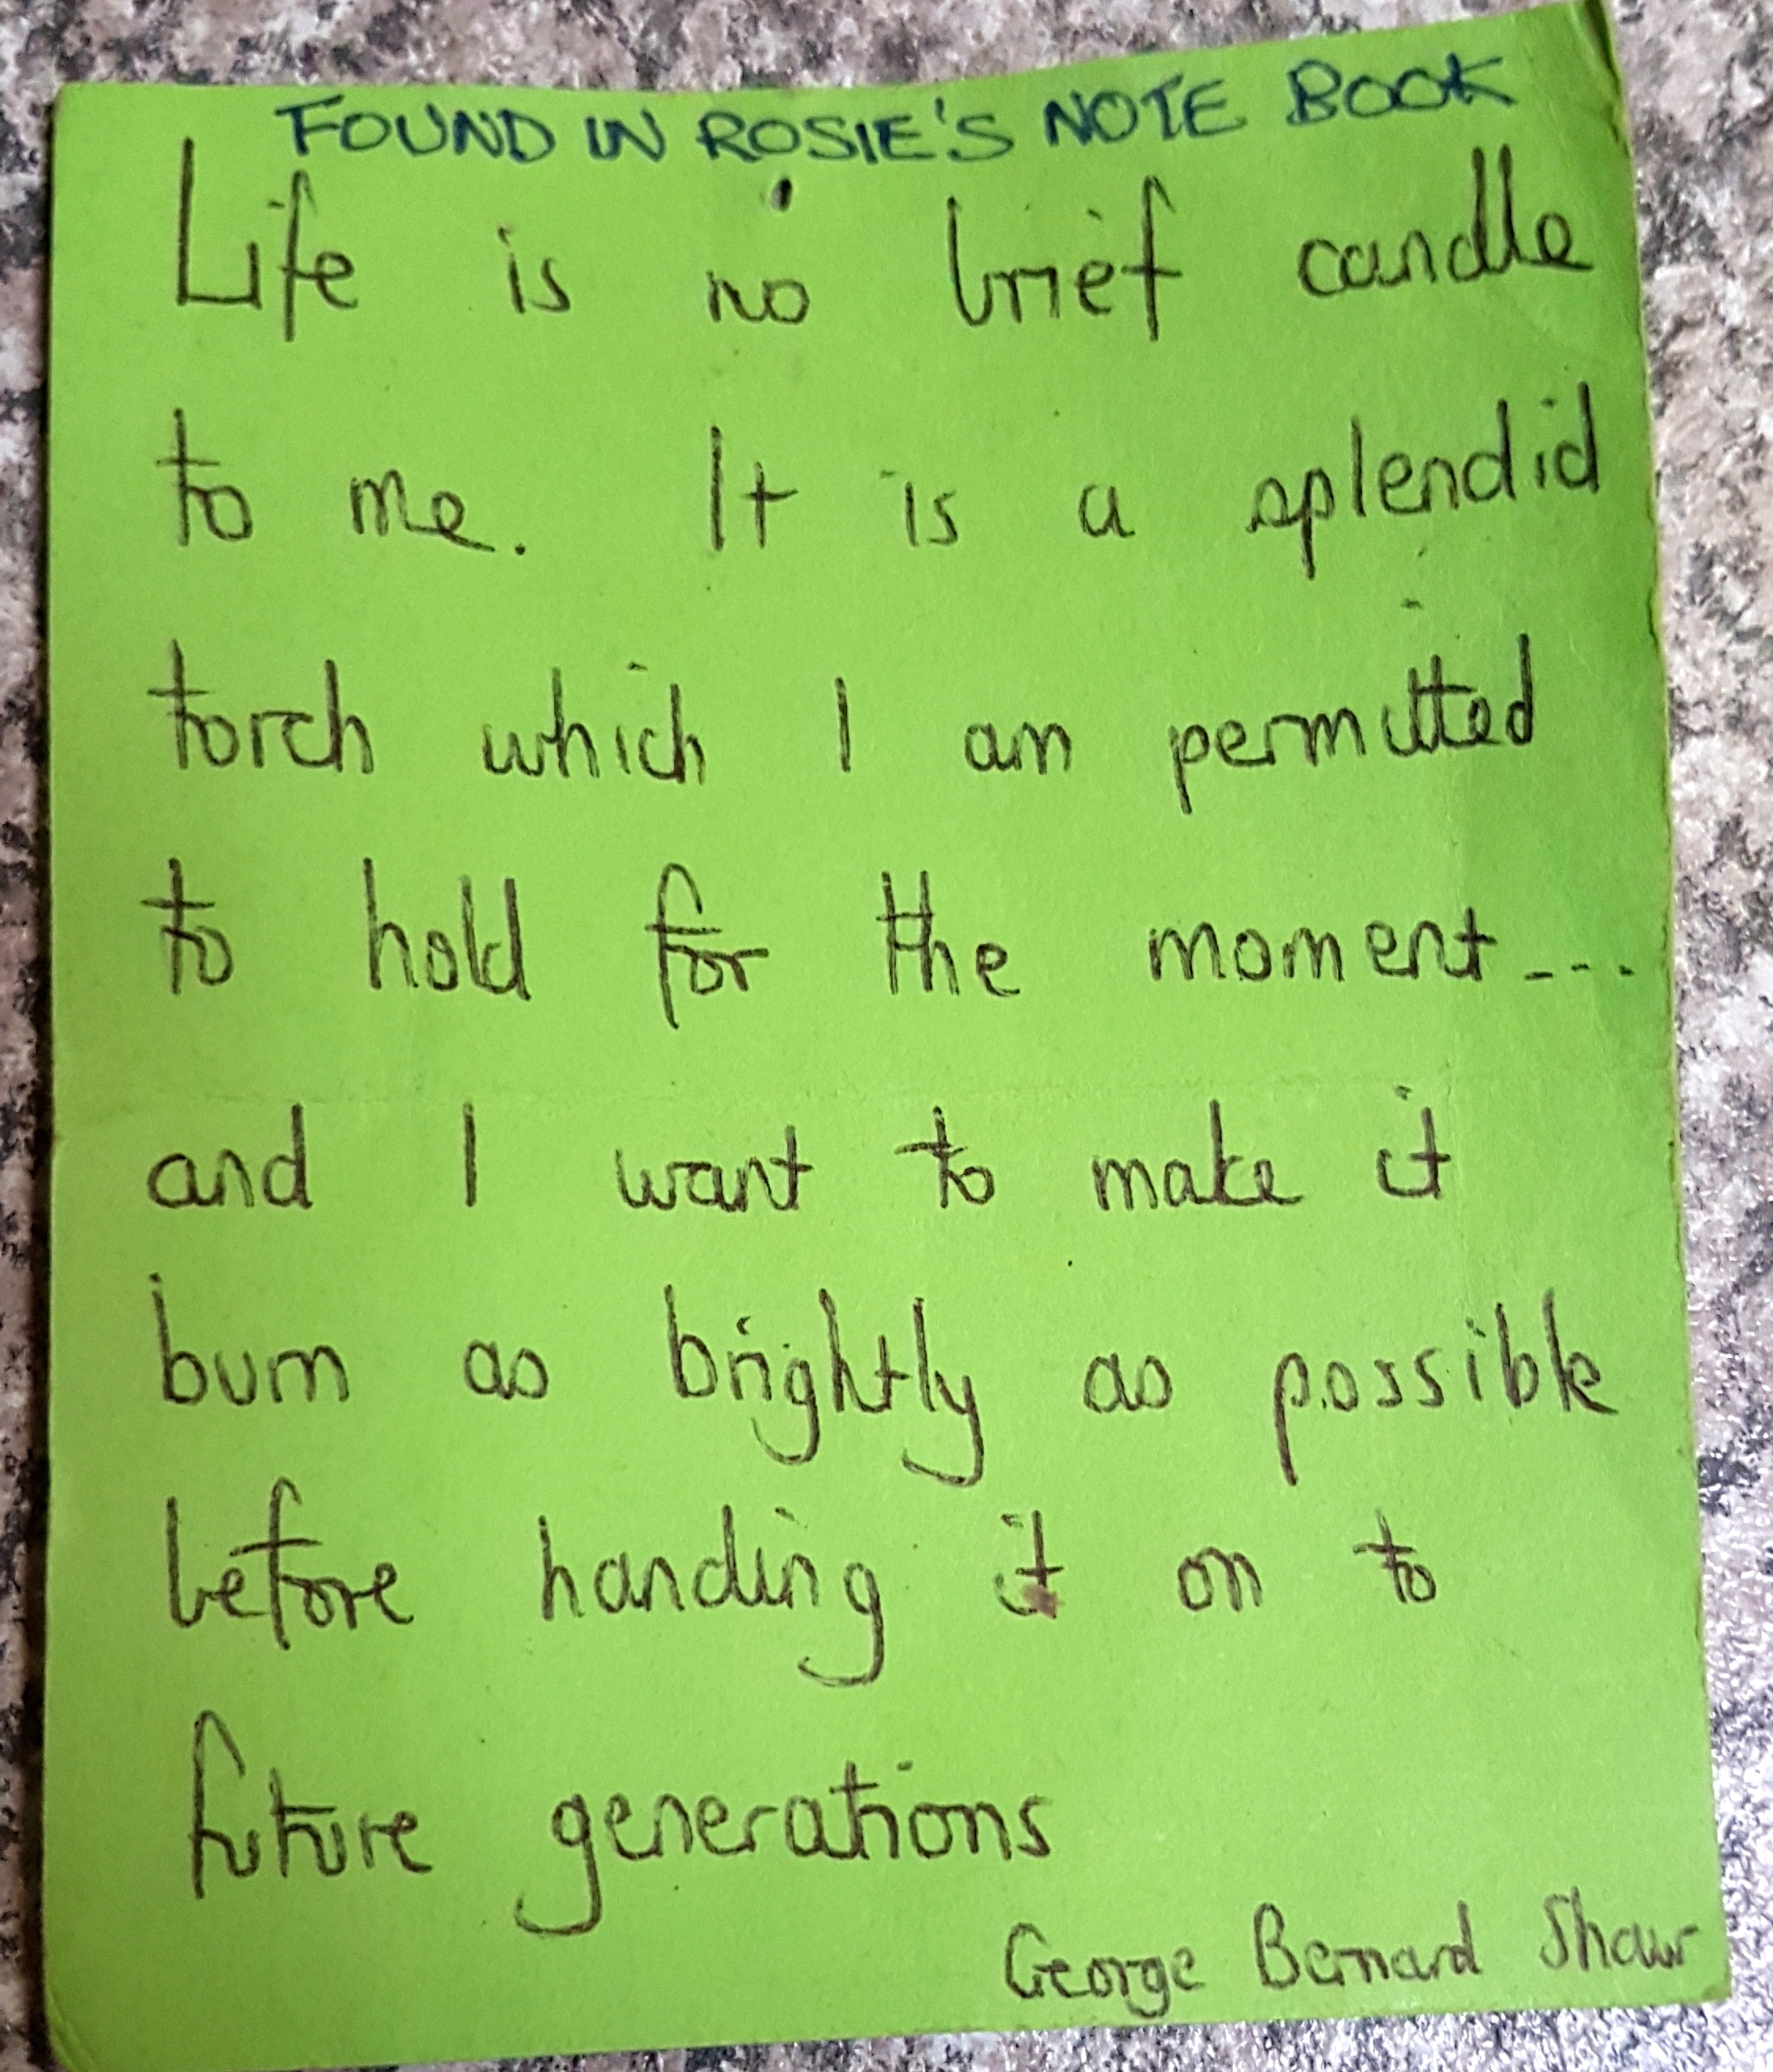 FOUND IN ROSIE'S NOTE BOOK
Life is no brief candle
to me. It is a splendid
torch which I am permitted
to hold for the moment...
and I want to make it
burn as brightly as possible
before handing it on to
future generations
George Bernard Shaw